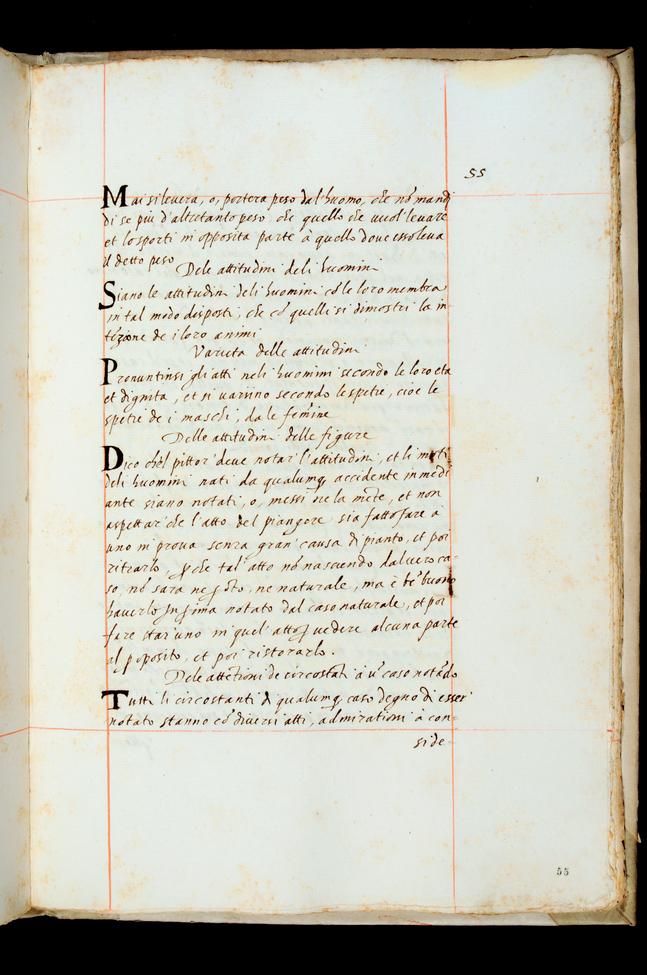 55
Mai si levera, o, portera peso dal' huomo, che nõ mandi
di se più d'altretanto peso, che quello che vuol' levare
et lo sporti in opposita parte à quello dove esso leva
il detto peso
Dele attitudini deli huomini
Siano le attitudini deli huomini cõ le loro membra
in tal modo disposti, che cõ quelli si dimostri la in-
tẽzione de i loro animi
Varieta delle attitudini
Pronuntinsi gli atti neli huomini secondo le loro eta
et dignita, et si variino secondo le spetie, cioe le
spetie de i maschi, da le femine
Delle attitudini delle figure
Dico ch'el pittor' deve notar' l'attitudini, et li moti
deli huomini nati da qualumq accidente inmedi
ante siano notati, o, messi ne la mẽte, et non
aspettar' che l'atto del piangere sia fatto fare à
uno in prova senza gran' causa di pianto, et poi
ritrarlo, che tal' atto nõ nascendo dal vero ca-
so, nõ sara ne, ne naturale, ma è bẽ buono
haverlo in prima notato dal caso naturale, et poi
fare star' uno in quel' atto vedere alcuna parte
al proposito, et poi ristorarlo.
Dele attẽtioni de circostãti à ũ caso notãdo
Tutti li circostanti di qualumq caso degno di esser'
notato stanno cõ diversi atti, admirationi à con-
side-
55